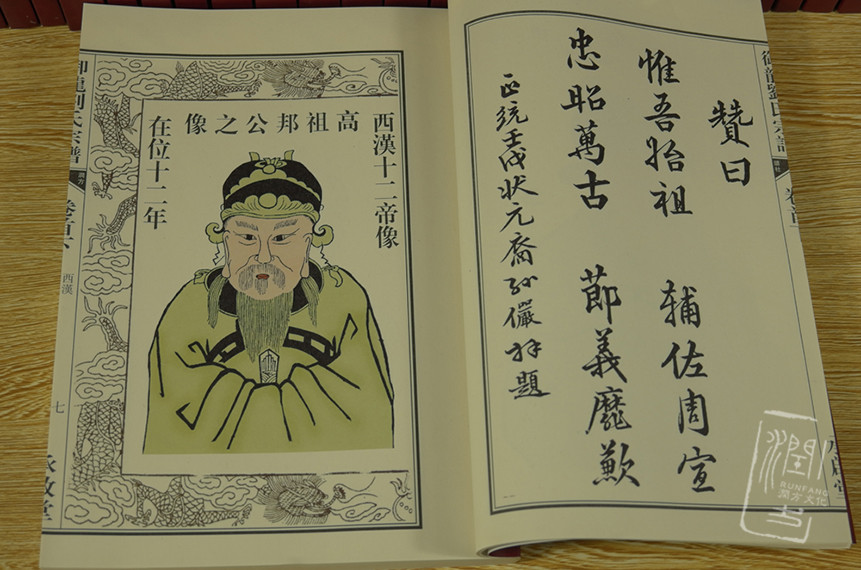 御龍劉氏宗譜
贊曰
惟吾始祖 輔佐周宣
忠昭萬古 節義靡歉
正統壬戌狀元裔孫儼拜題
西漢十二帝像
高祖邦公之像
在位十二年
御龍劉氏宗譜
卷首下
西漢
七
潤方
RUNFANG
潤方文化